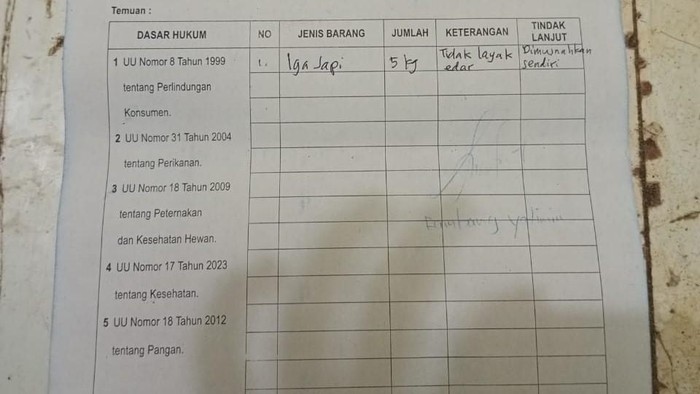 Temuan :
DASAR HUKUM NO JENIS BARANG JUMLAH KETERANGAN TINDAK LANJUT
1 UU Nomor 8 Tahun 1999 1. Iga Sapi 5 kg Tidak layak edar Dimusnahkan sendiri
tentang Perlindungan
Konsumen.
2 UU Nomor 31 Tahun 2004
tentang Perikanan.
3 UU Nomor 18 Tahun 2009
tentang Peternakan
dan Kesehatan Hewan.
4 UU Nomor 17 Tahun 2023
tentang Kesehatan.
5 UU Nomor 18 Tahun 2012
tentang Pangan.